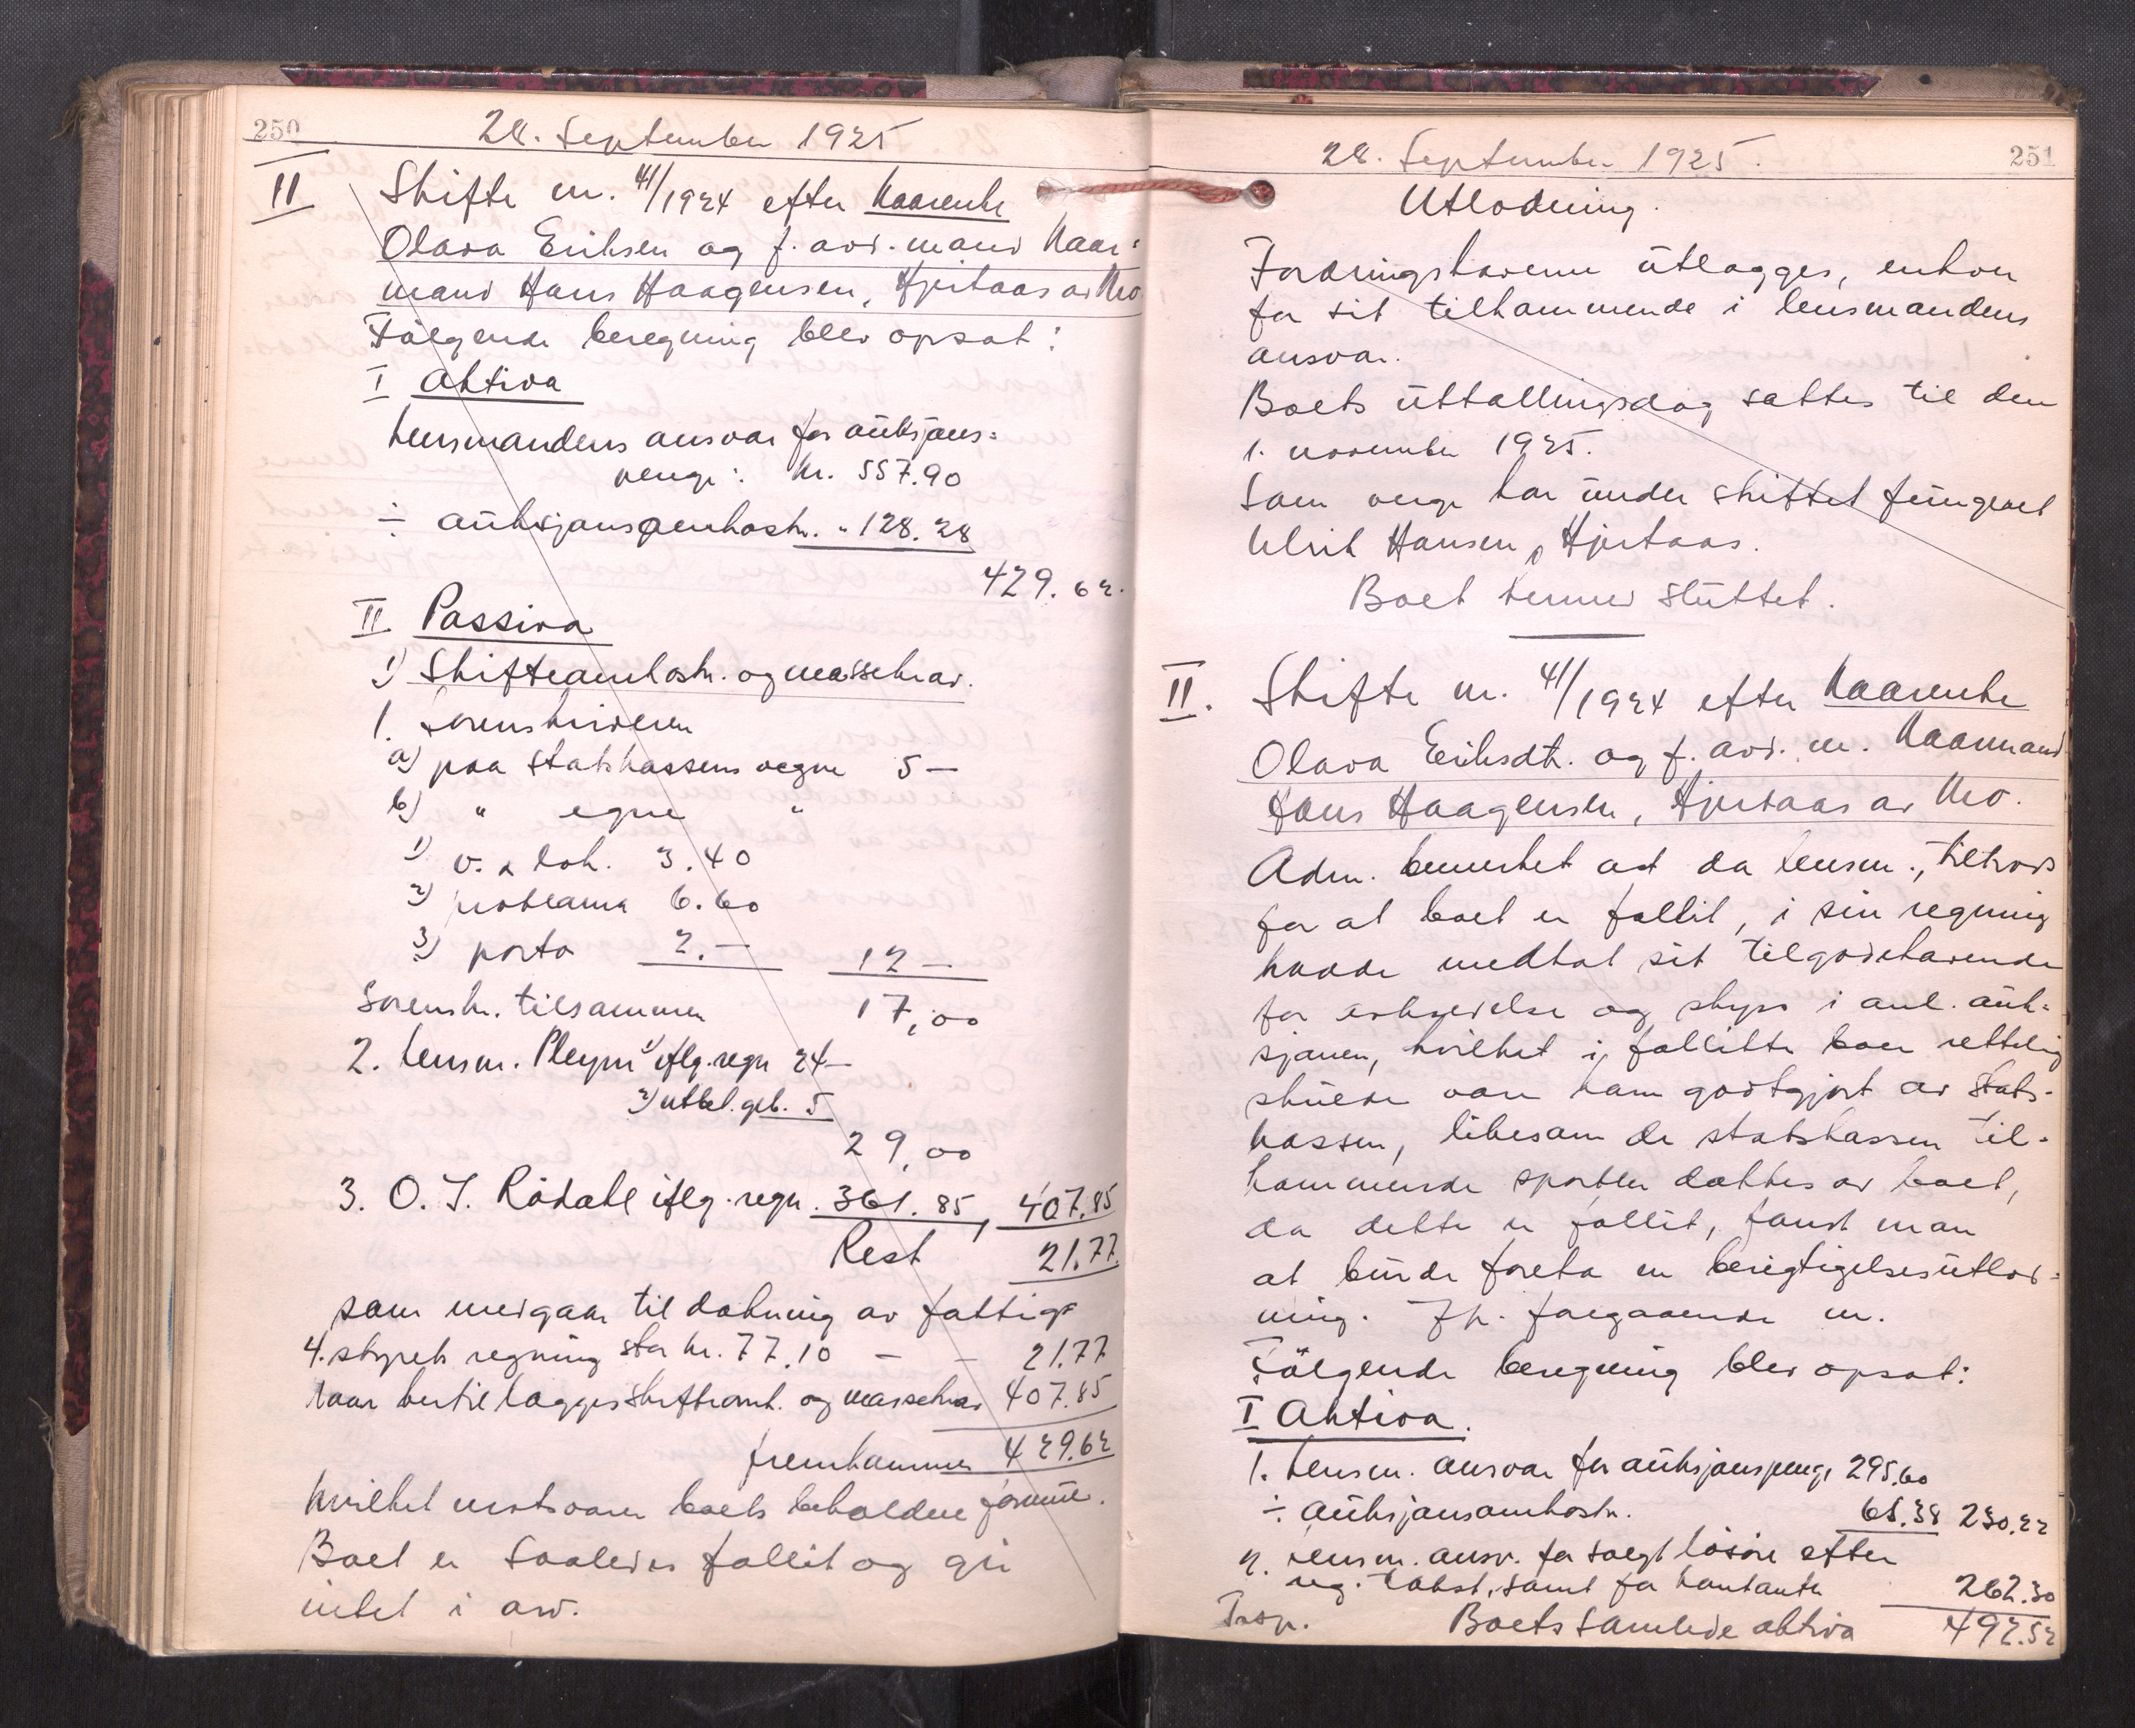 250
28. September 1925
II
Skifte nr. 41/1924 efter kaarenke
Olava Eriksen og f. avd. mand kaar=
mand Hans Haagensen, Hjertaas av Mo
Følgende beregning blev opsat:
I Aktiva
Lensmandens ansvar for auksjons=
penge: kr. 557.90
÷ auksjonsomkostn. " 128.28
429.62.
II Passiva
1) Skifteomkostn. og massekrav.
1. Sorenskriveren
a) paa statskassens vegne 5 —
b) " egne "
1) v. & lok. 3.40
2) proklama 6.60
3) porto 2.— 12 —
Sorenskr. tilsammen 17,00
2. Lensm. Pleym 1) iflg. regn 24—
2) utbet. geb. 5
29,00
3. O. J. Rödahl iflg. regn. 361.85, 407.85
Rest 21.77.
som medgaar til dækning av fattig=
4. styrets regning stor kr. 77.10 — — 21.77
Naar hertil lægges skifteomk. og massekrav 407.85
fremkommer 429.62
hvilket motsvarer boets beholdne formue.
Boet er saaledes fallit og gir
intet i arv.
28. September 1925.
251
Utlodning.
Fordringshaverne utlægges, enhver
for sit tilkommende i lensmandens
ansvar.
Boets uttællingsdag sattes til den
1. november 1925.
Som verge har under skiftet fungeret
Ulrik Hansen, Hjertaas.
Boet hermed sluttet.
II. Skifte nr. 41/1924 efter kaarenke
Olava Eriksdt. og f. avd. m. kaarmand
Hans Haagensen, Hjertaas av Mo.
Adm. bemerket at da lensm., tiltrods
for at boet er fallit, i sin regning
hadde medtat sit tilgodehavende
for avhjemlelse og skyss i anl. auk=
sjonen, hvilket i fallitte boer rettelig
skulde være ham godtgjort av stats-
kassen, likesom de statskassen til-
kommende sportler dækkes av boet,
da dette er fallit, fandt man
at burde foreta en berigtigelsesutlod=
ning. Jfr. foregaaende nr.
Følgende beregning blev opsat:
I Aktiva.
1. Lensm. ansvar for auksjonspenge 295.60
÷ auksjonsomkostn. 65.38 230.22
2. Lensm. ansv. for solgt løsøre efter
reg. takst, samt for kontante 262.30
Trsp. Boets samlede aktiva 492.52